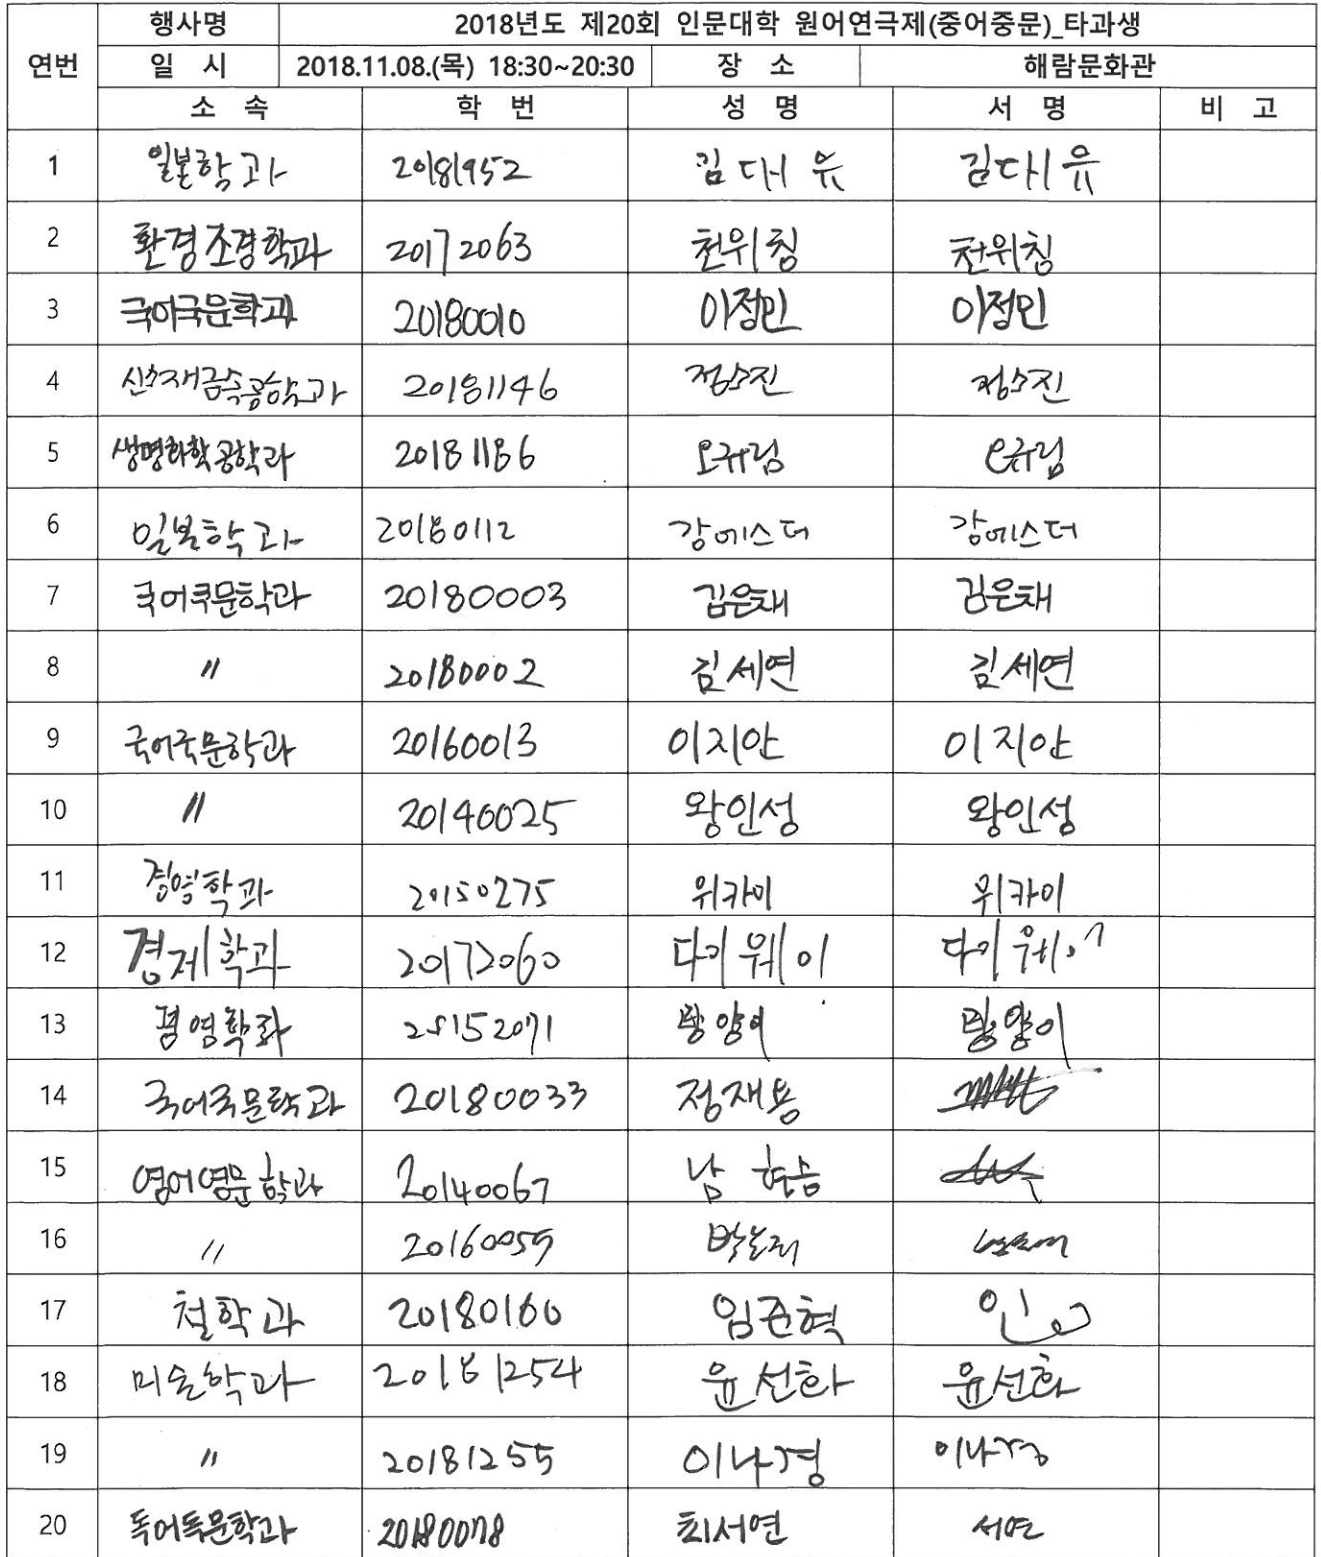 행사명 2018년도 제20회 인문대학 원어연극제(중어중문)_타과생
연번 일 시 2018.11.08.(목) 18:30~20:30 장 소 해람문화관
소 속 학 번 성 명 서 명 비 고
1 일본학과 20181952 김대유 김대유
2 환경조경학과 20172063 천위칭 천위칭
3 국어국문학과 20180010 이정민 이정민
4 신소재금속공학과 20181146 정수진 정수진
5 생명화학공학과 20181186 오규림 오규림
6 일본학과 20180112 강에스더 강에스더
7 국어국문학과 20180003 김은채 김은채
8 〃 20180002 김세연 김세연
9 국어국문학과 20160013 이지안 이지안
10 〃 20140025 왕인성 왕인성
11 경영학과 20150275 위카이 위카이
12 경제학과 20172060 다이웨이 다이웨이
13 경영학과 20152071 팡양이 팡양이
14 국어국문학과 20180033 정재용
15 영어영문학과 20140067 남현승
16 〃 20160059
17 철학과 20180160 임준혁 인
18 미술학과 20181254 윤선화 윤선화
19 〃 20181255 이나경 이나경
20 독어독문학과 20180078 최서연 서연